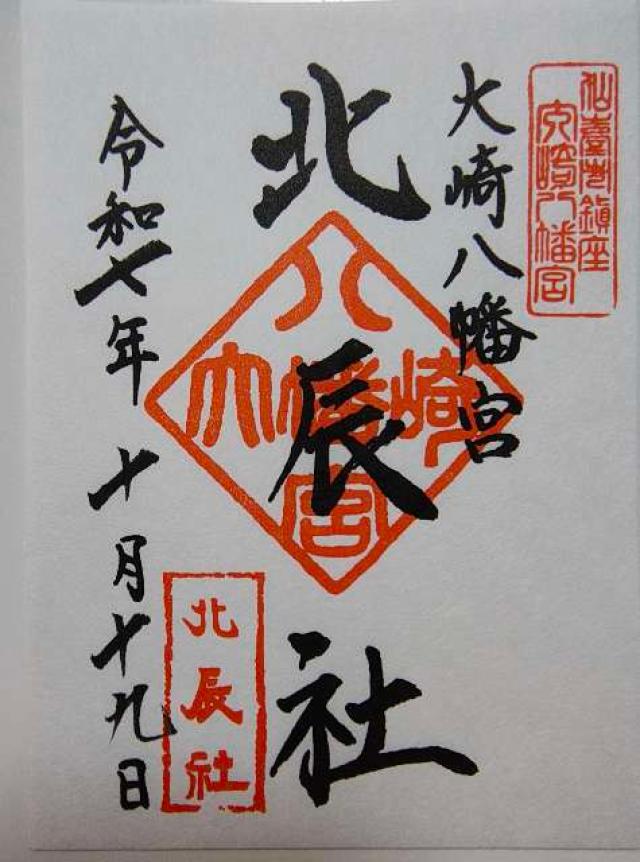 仙臺 鎮座
大崎八幡宮
大崎八幡宮
北辰社
大崎八幡宮
北辰社
令和七年 十月十九日